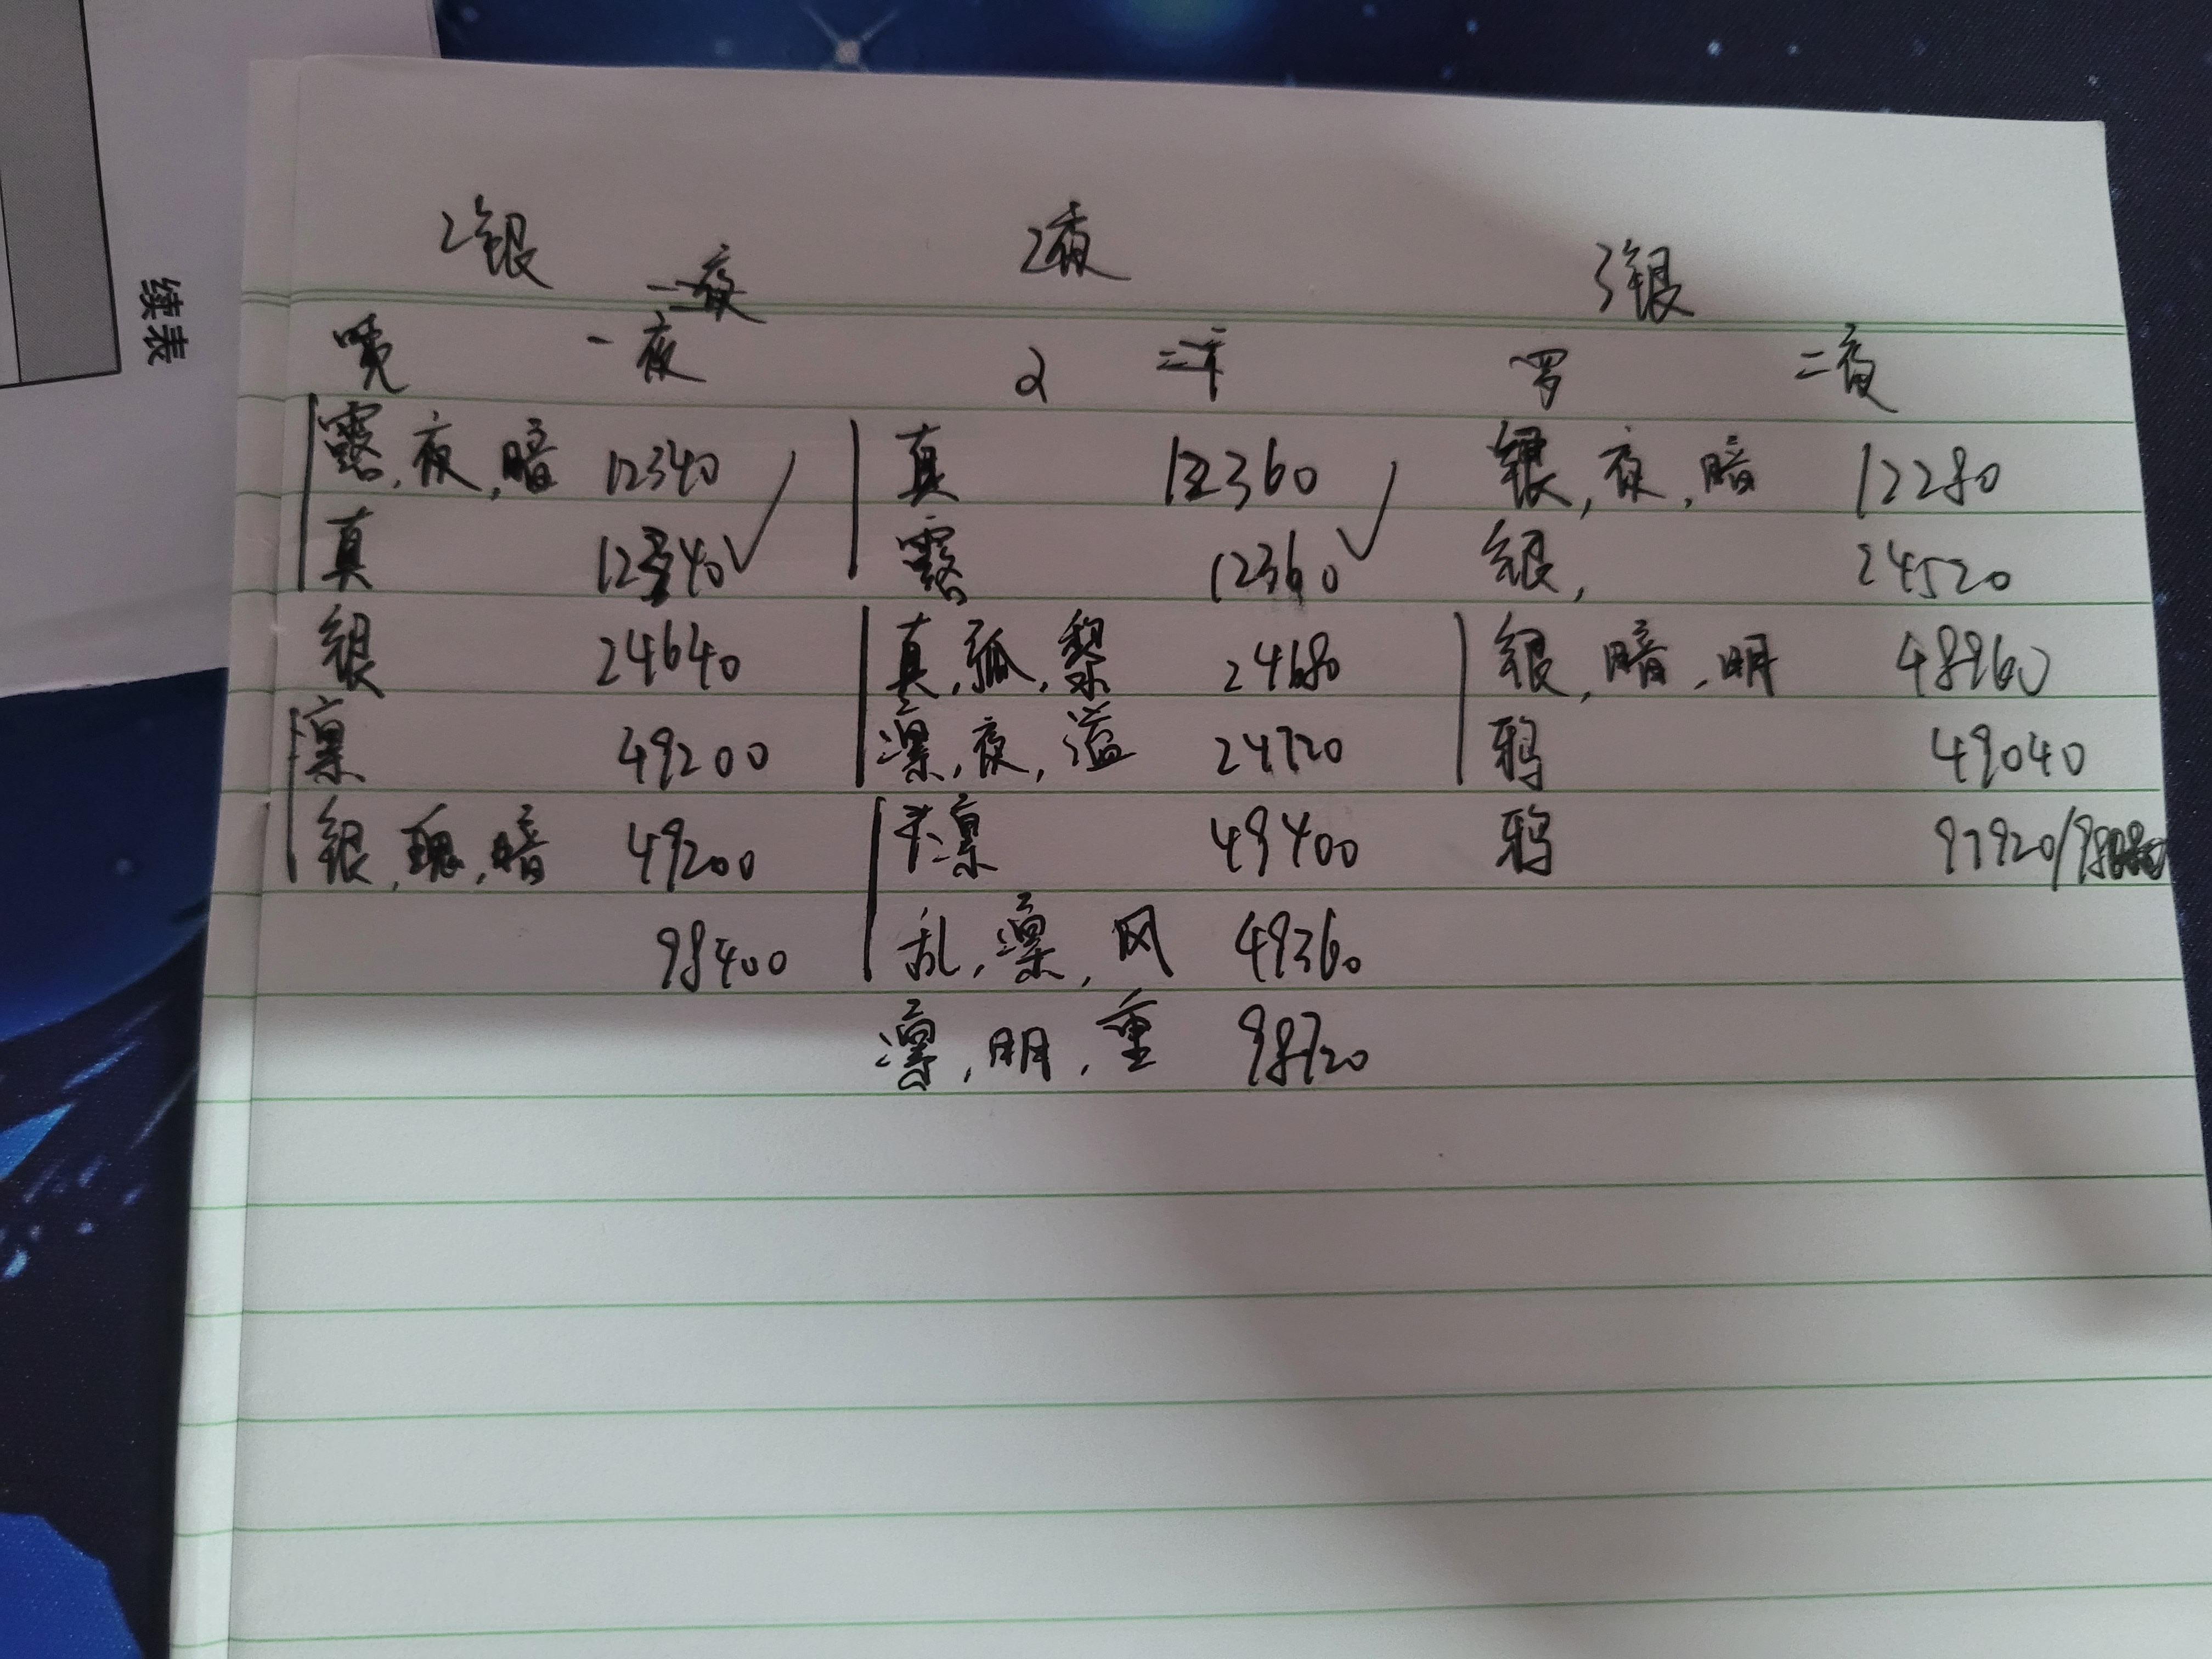 续表
2银 2夜 3银
一夜
光 一夜 2 二千 罗 二夜
露,夜,暗 12340 真 12360 银,夜,暗 12280
真 12340 露 12360 银, 24520
银 24640 真,孤,黎 24680 银,暗,明 48960
凛 49200 凛,夜,溢 24720 鸦 49040
银,瑰,暗 49200 凛 49400 鸦 97920/98080
98400 乱,凛,风 49360
凛,明,重 98720